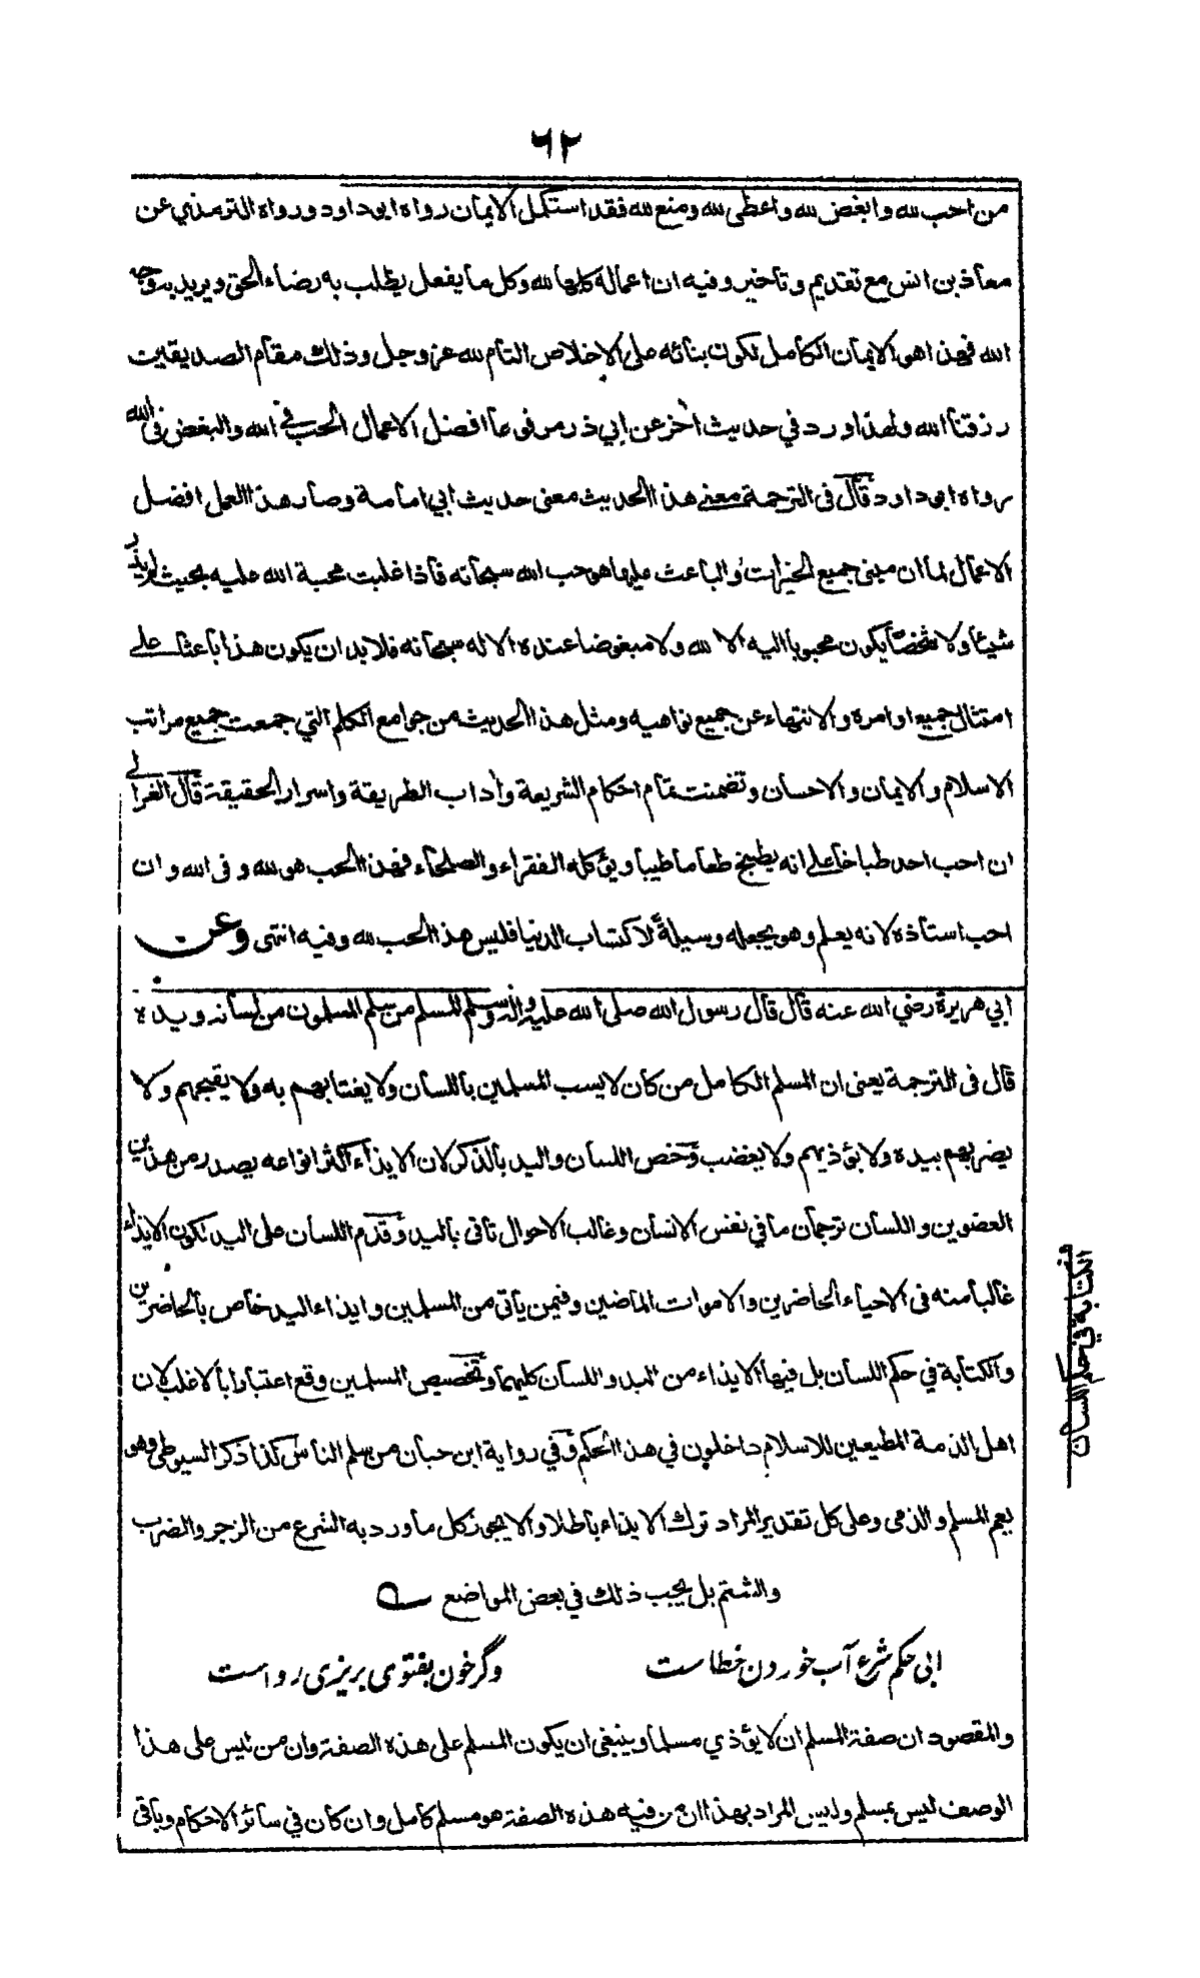 ٦٢
من احب لله وابغض لله واعطى لله ومنع لله فقد استكمل الايمان رواه ابوداود ورواه الترمذي عن
معاذ بن انس مع تقديم وتأخير وفيه ان اعماله كلها لله وكل ما يفعل يطلب به رضاء الحق ويريد به وجه
الله فهذا هو الايمان الكامل لكون بنائه على الاخلاص التام لله عز وجل وذلك مقام الصديقين
رزقنا الله ولهذا ورد في حديث اخر عن ابي ذر مرفوعا افضل الاعمال الحب في الله والبغض في الله
رواه ابو داود قال في الترجمة معنى هذا الحديث معنى حديث ابي امامة وصار هذا العمل افضل
الاعمال لما ان مبنى جميع الخيرات والباعث عليها هو حب الله سبحانه فاذا غلبت محبة الله عليه بحيث لم يذر
شيئا ولا شخصا يكون محبوبا اليه الا لله ولا مبغوضا عنده الا له سبحانه فلا بد ان يكون هذا باعثا على
امتثال جميع اوامره والانتهاء عن جميع نواهيه ومثل هذا الحديث من جوامع الكلم التي جمعت جميع مراتب
الاسلام والايمان والاحسان وتضمنت تمام احكام الشريعة وآداب الطريقة واسرار الحقيقة قال الغزالي
ان احب احد طباخا على انه يطبخ طعاما طيبا ويؤكله الفقراء والصلحاء فهذا الحب هو لله وفى الله وان
احب استاذه لانه يعلم وهو يجعله وسيلة لاكتساب الدنيا فليس هذا الحب لله وفيه انتهى وعن
ابي هريرة رضي الله عنه قال قال رسول الله صلى الله عليه واله وسلم المسلم من سلم المسلمون من لسانه ويده
قال فى الترجمة يعنى ان المسلم الكامل من كان لا يسب المسلمين باللسان ولا يغتابهم به ولا يقبحهم ولا
يضربهم بيده ولا يؤذيهم ولا يغضب وخص اللسان واليد بالذكر لان الايذاء اكثر انواعه يصدر من هذين
العضوين واللسان ترجمان ما في نفس الانسان وغالب الاحوال تأتى باليد وقدم اللسان على اليد لكون الايذاء
غالبا منه فى الاحياء الحاضرين والاموات الماضين وفيمن يأتى من المسلمين وايذاء اليد خاص بالحاضرين
والكتابة في حكم اللسان بل فيها الايذاء من اليد واللسان كليهما وتخصيص المسلمين وقع اعتبارا بالاغلب لان
اهل الذمة المطيعين للاسلام داخلون في هذا الحكم وفي رواية ابن حبان من سلم الناس كذا ذكر السيوطى وهو
يعم المسلم والذمى وعلى كل تقدير المراد ترك الايذاء باطلا والا يجوز كل ما ورد به الشرع من الزجر والضرب
والشتم بل يجب ذلك في بعض المواضع
ابى حكم شرع آب خوردن خطاست وگر خون بفتوى بريزى رواست
والمقصود ان صفة المسلم ان لا يؤذي مسلما وينبغى ان يكون المسلم على هذه الصفة وان من ليس على هذا
الوصف ليس بمسلم وليس المراد بهذا ان من فيه هذه الصفة هو مسلم كامل وان كان في سائر الاحكام وباقى
الكتابة في حكم اللسان